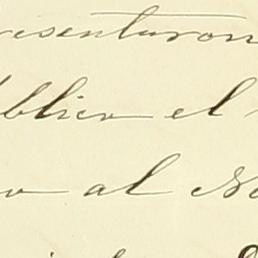 resentaron
blico el
o al No